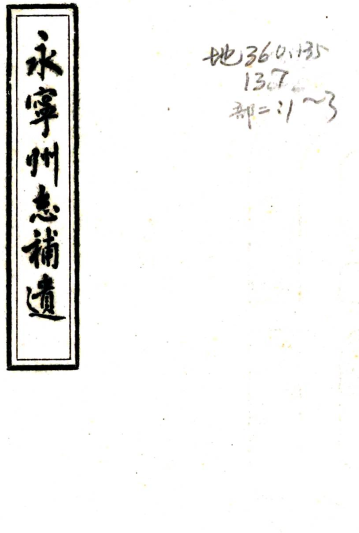 永寧州志補遺
地360.135
137
部二:1~3